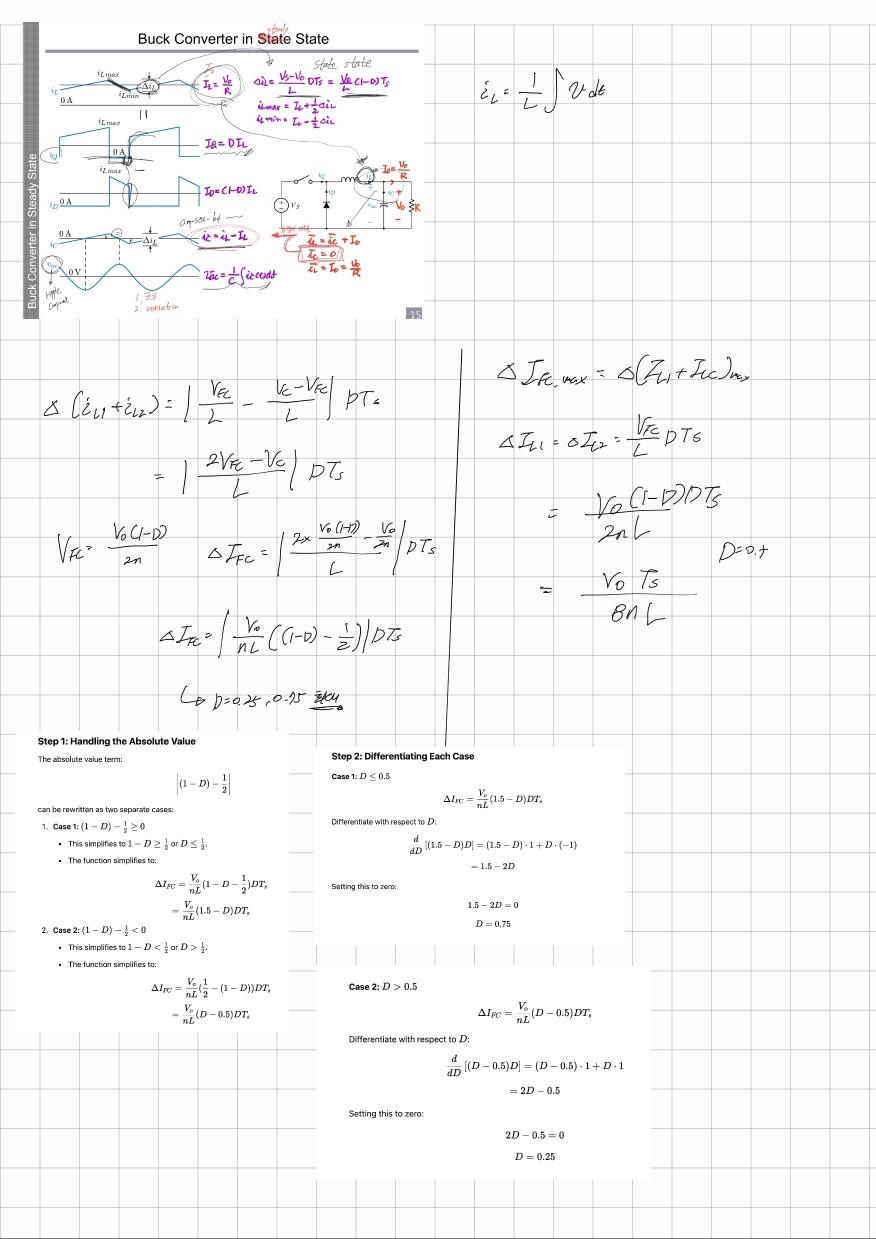 steady
Buck Converter in State State
Buck Converter in Steady State
State state
i_Lmax
i_L
i_Lmin
Δi_L
0 A
I_L = Vo/R
Δi_L = (Vs-Vo)/L DTs = Vo/L (1-D)Ts
i_Lmax = I_L + 1/2 Δi_L
i_Lmin = I_L - 1/2 Δi_L
i_Lmax
i_Q
0 A
I_Q = D I_L
i_Lmax
i_D 0 A
I_D = (1-D) I_L
i_C 0 A
Δi_L
i_C = i_L - I_L
v_ac
0 V
i_Q
i_D
V_S
i_L
i_C
Vo
R
Io = Vo/R
i_L = i_C + Io
i_C = 0
i_L = Io = Vo/R
15
i_L = 1/L ∫ v dt
Δ(i_L1 + i_L2) = | V_FC/L - (V_C - V_FC)/L | DTs
= | (2V_FC - V_C)/L | DTs
V_FC = Vo(1-D)/2n
ΔI_FC = | (2× Vo(1-D)/2n - Vo/2n)/L | DTs
ΔI_FC = | Vo/nL ((1-D) - 1/2) | DTs
↳ D=0.25, 0.75
ΔI_FC,max = Δ(I_L1 + I_LC)max
ΔI_L1 = ΔI_L2 = V_FC/L DTs
= Vo(1-D)DTs / 2nL
= Vo Ts / 8nL
Step 1: Handling the Absolute Value
The absolute value term:
|(1 − D) − 1/2|
can be rewritten as two separate cases:
1. Case 1: (1 − D) − 1/2 ≥ 0
• This simplifies to 1 − D ≥ 1/2 or D ≤ 1/2.
• The function simplifies to:
ΔI_FC = Vo/nL (1 − D − 1/2)DTs
= Vo/nL (1.5 − D)DTs
2. Case 2: (1 − D) − 1/2 < 0
• This simplifies to 1 − D < 1/2 or D > 1/2.
• The function simplifies to:
ΔI_FC = Vo/nL (1/2 − (1 − D))DTs
= Vo/nL (D − 0.5)DTs
Step 2: Differentiating Each Case
Case 1: D ≤ 0.5
ΔI_FC = Vo/nL (1.5 − D)DTs
Differentiate with respect to D:
d/dD [(1.5 − D)D] = (1.5 − D) · 1 + D · (−1)
= 1.5 − 2D
Setting this to zero:
1.5 − 2D = 0
D = 0.75
Case 2: D > 0.5
ΔI_FC = Vo/nL (D − 0.5)DTs
Differentiate with respect to D:
d/dD [(D − 0.5)D] = (D − 0.5) · 1 + D · 1
= 2D − 0.5
Setting this to zero:
2D − 0.5 = 0
D = 0.25